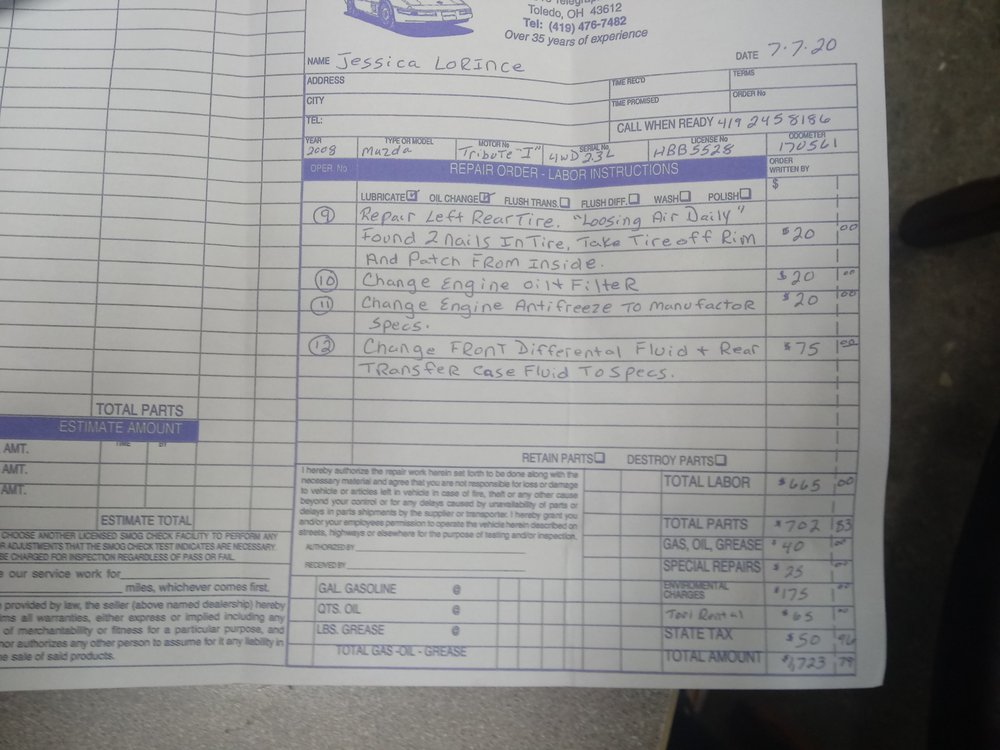 Toledo, OH 43612
Tel: (419) 476-7482
Over 35 years of experience
NAME Jessica LORINCE
DATE 7.7.20
ADDRESS
TIME REC'D
TERMS
CITY
TIME PROMISED
ORDER No
TEL:
CALL WHEN READY 419 245 8186
YEAR TYPE OR MODEL MOTOR No SERIAL No LICENSE No ODOMETER
2008 Mazda Tribute "I" 4WD 2.3L HBB5528 170561
OPER No REPAIR ORDER - LABOR INSTRUCTIONS
ORDER WRITTEN BY
LUBRICATE OIL CHANGE FLUSH TRANS. FLUSH DIFF. WASH POLISH $
9 Repair Left Rear Tire. "Loosing Air Daily"
Found 2 nails In Tire, Take Tire off Rim $20 00
And Patch From Inside.
10 Change Engine oil + Filter $20 00
11 Change Engine Antifreeze To Manufactor $20 00
Specs.
12 Change FRONT Differential Fluid + Rear $75 00
TRansfer Case Fluid To Specs.
TOTAL PARTS
ESTIMATE AMOUNT
TIME BY
AMT.
AMT.
AMT.
ESTIMATE TOTAL
CHOOSE ANOTHER LICENSED SMOG CHECK FACILITY TO PERFORM ANY
R ADJUSTMENTS THAT THE SMOG CHECK TEST INDICATES ARE NECESSARY.
BE CHARGED FOR INSPECTION REGARDLESS OF PASS OR FAIL.
e our service work for
miles, whichever comes first.
provided by law, the seller (above named dealership) hereby
ims all warranties, either express or implied including any
of merchantability or fitness for a particular purpose, and
nor authorizes any other person to assume for it any liability in
e sale of said products.
RETAIN PARTS DESTROY PARTS
I hereby authorize the repair work herein set forth to be done along with the
necessary material and agree that you are not responsible for loss or damage
to vehicle or articles left in vehicle in case of fire, theft or any other cause
beyond your control or for any delays caused by unavailability of parts or
delays in parts shipments by the supplier or transporter. I hereby grant you
and/or your employees permission to operate the vehicle herein described on
streets, highways or elsewhere for the purpose of testing and/or inspection.
AUTHORIZED BY
RECEIVED BY
GAL. GASOLINE @
QTS. OIL @
LBS. GREASE @
TOTAL GAS -OIL - GREASE
TOTAL LABOR $665 00
TOTAL PARTS $702 83
GAS, OIL, GREASE $40 00
SPECIAL REPAIRS $25 00
ENVIROMENTAL CHARGES $175 00
Tool Rental $65 00
STATE TAX $50 96
TOTAL AMOUNT $1,723 79